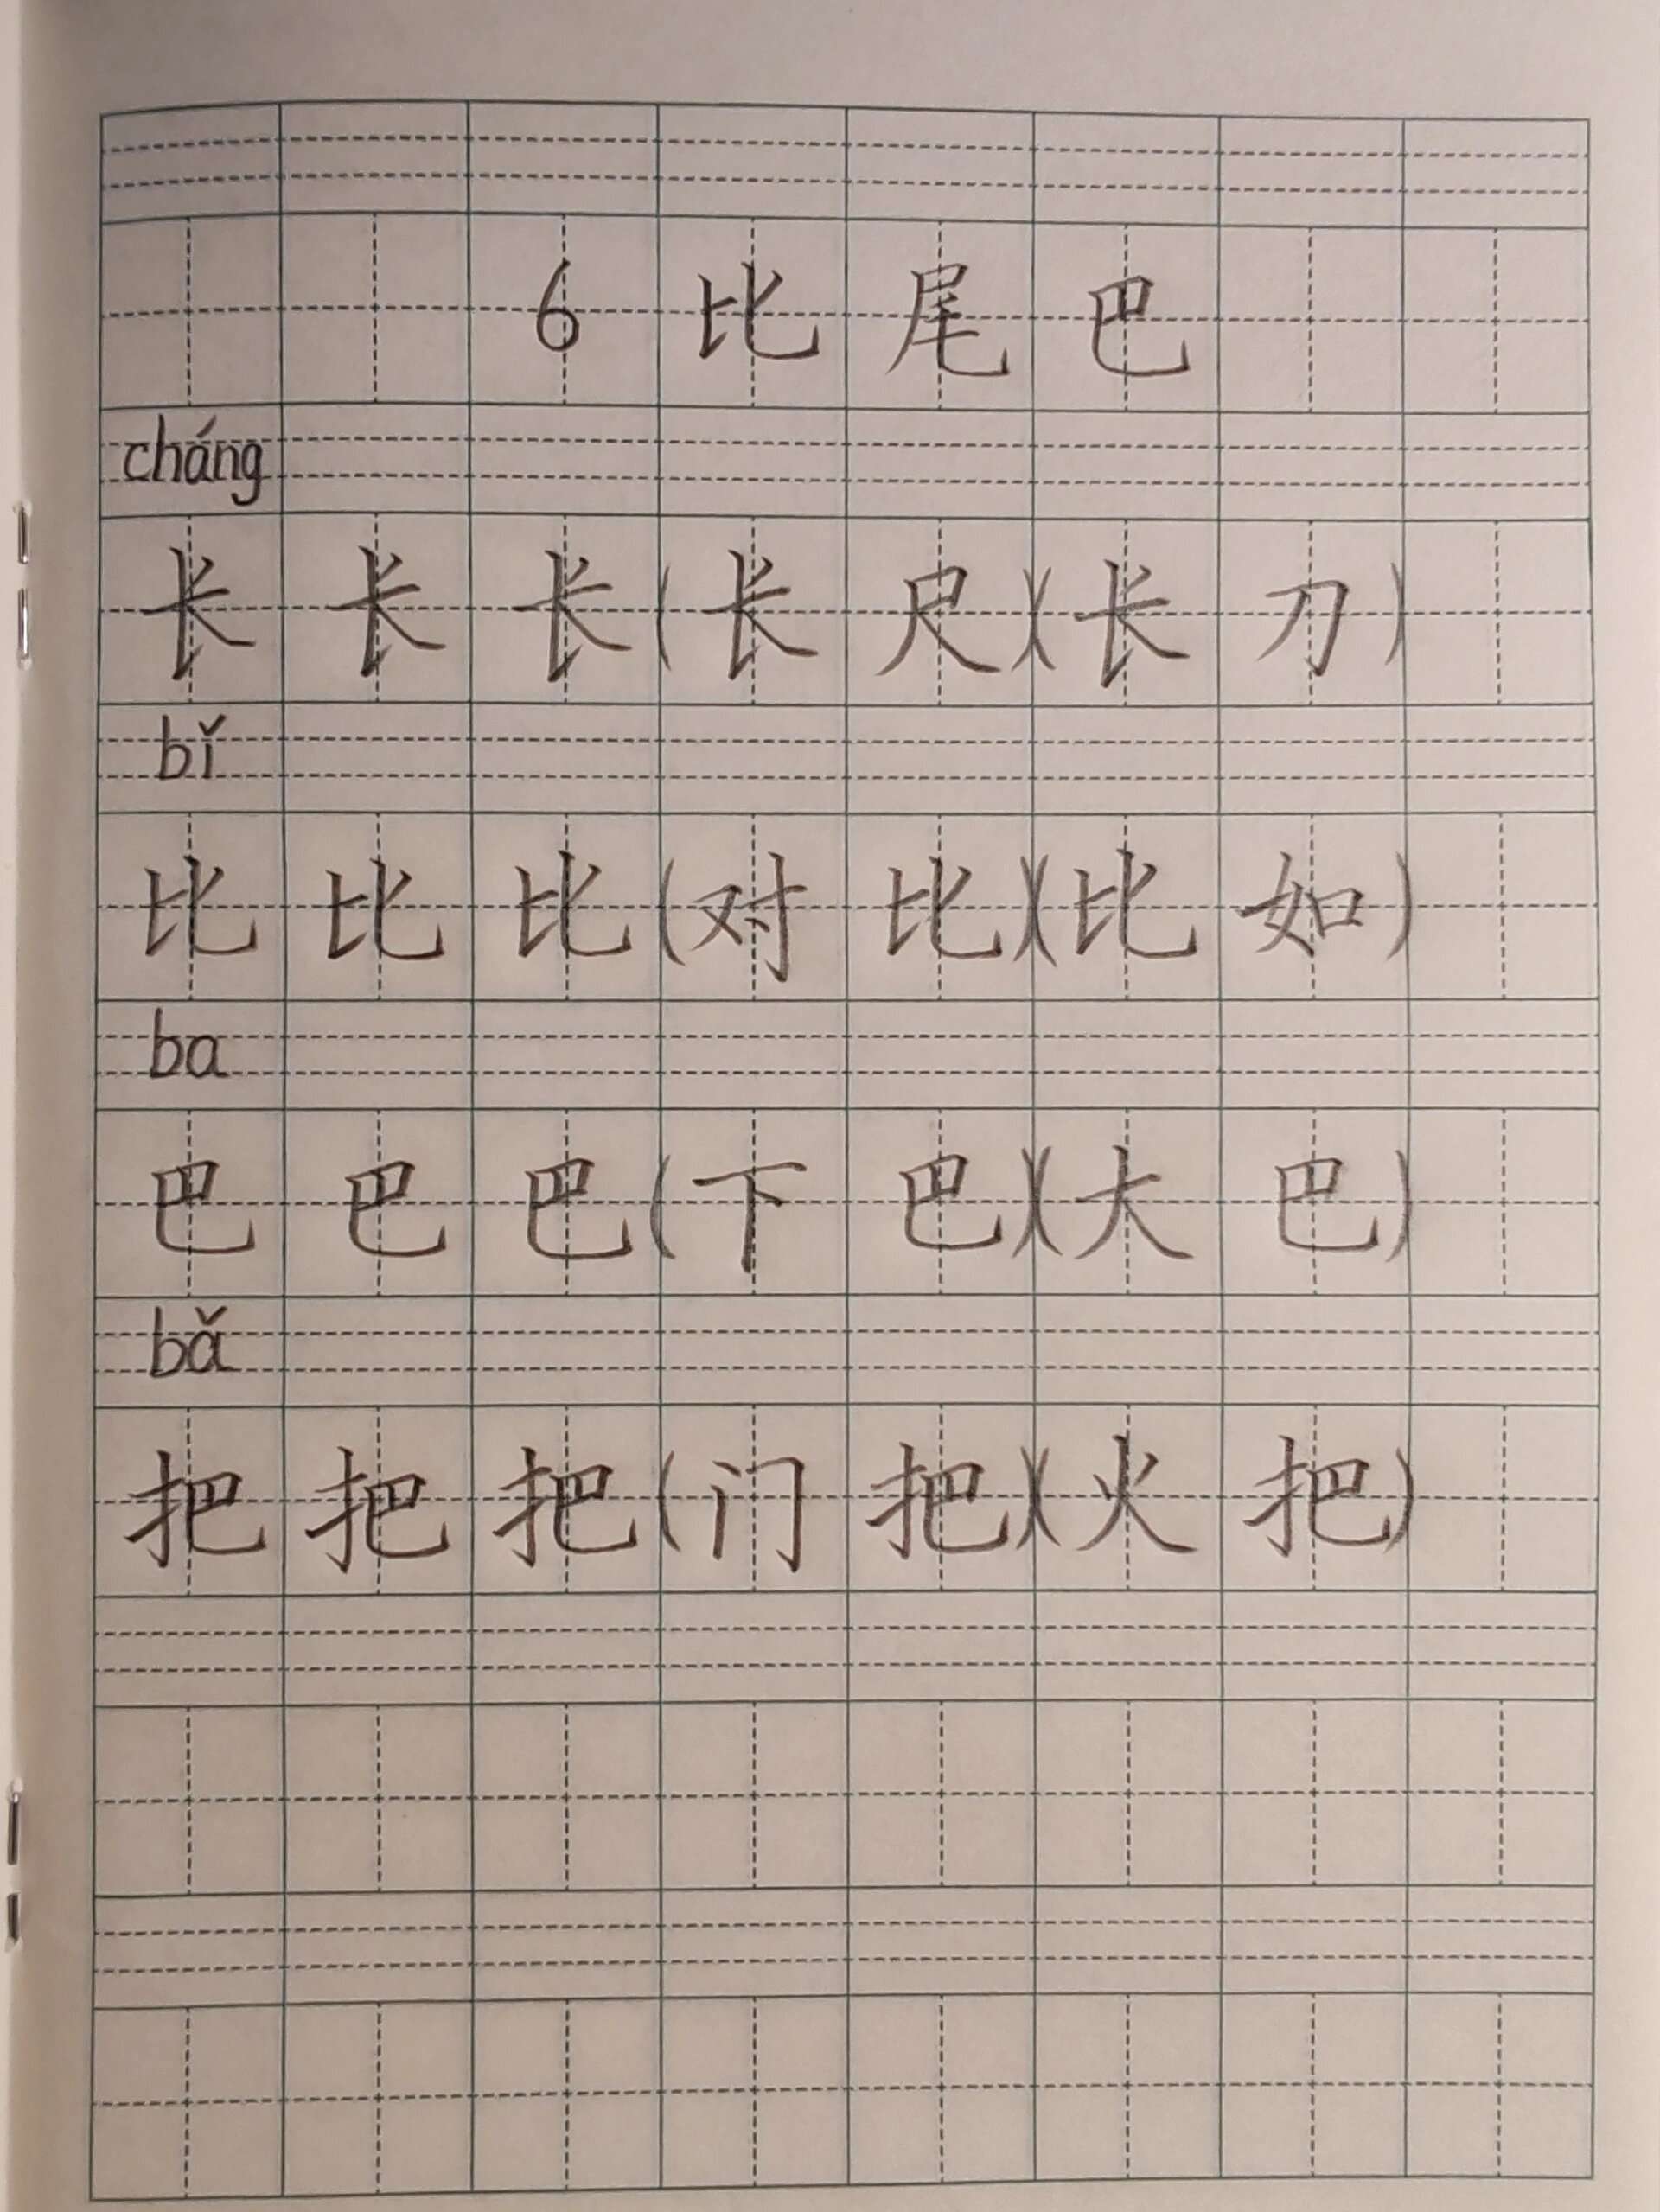 6 比尾巴
cháng
长 长 长 (长尺)(长刀)
bǐ
比 比 比 (对比)(比如)
ba
巴 巴 巴 (下巴)(大巴)
bǎ
把 把 把 (门把)(火把)